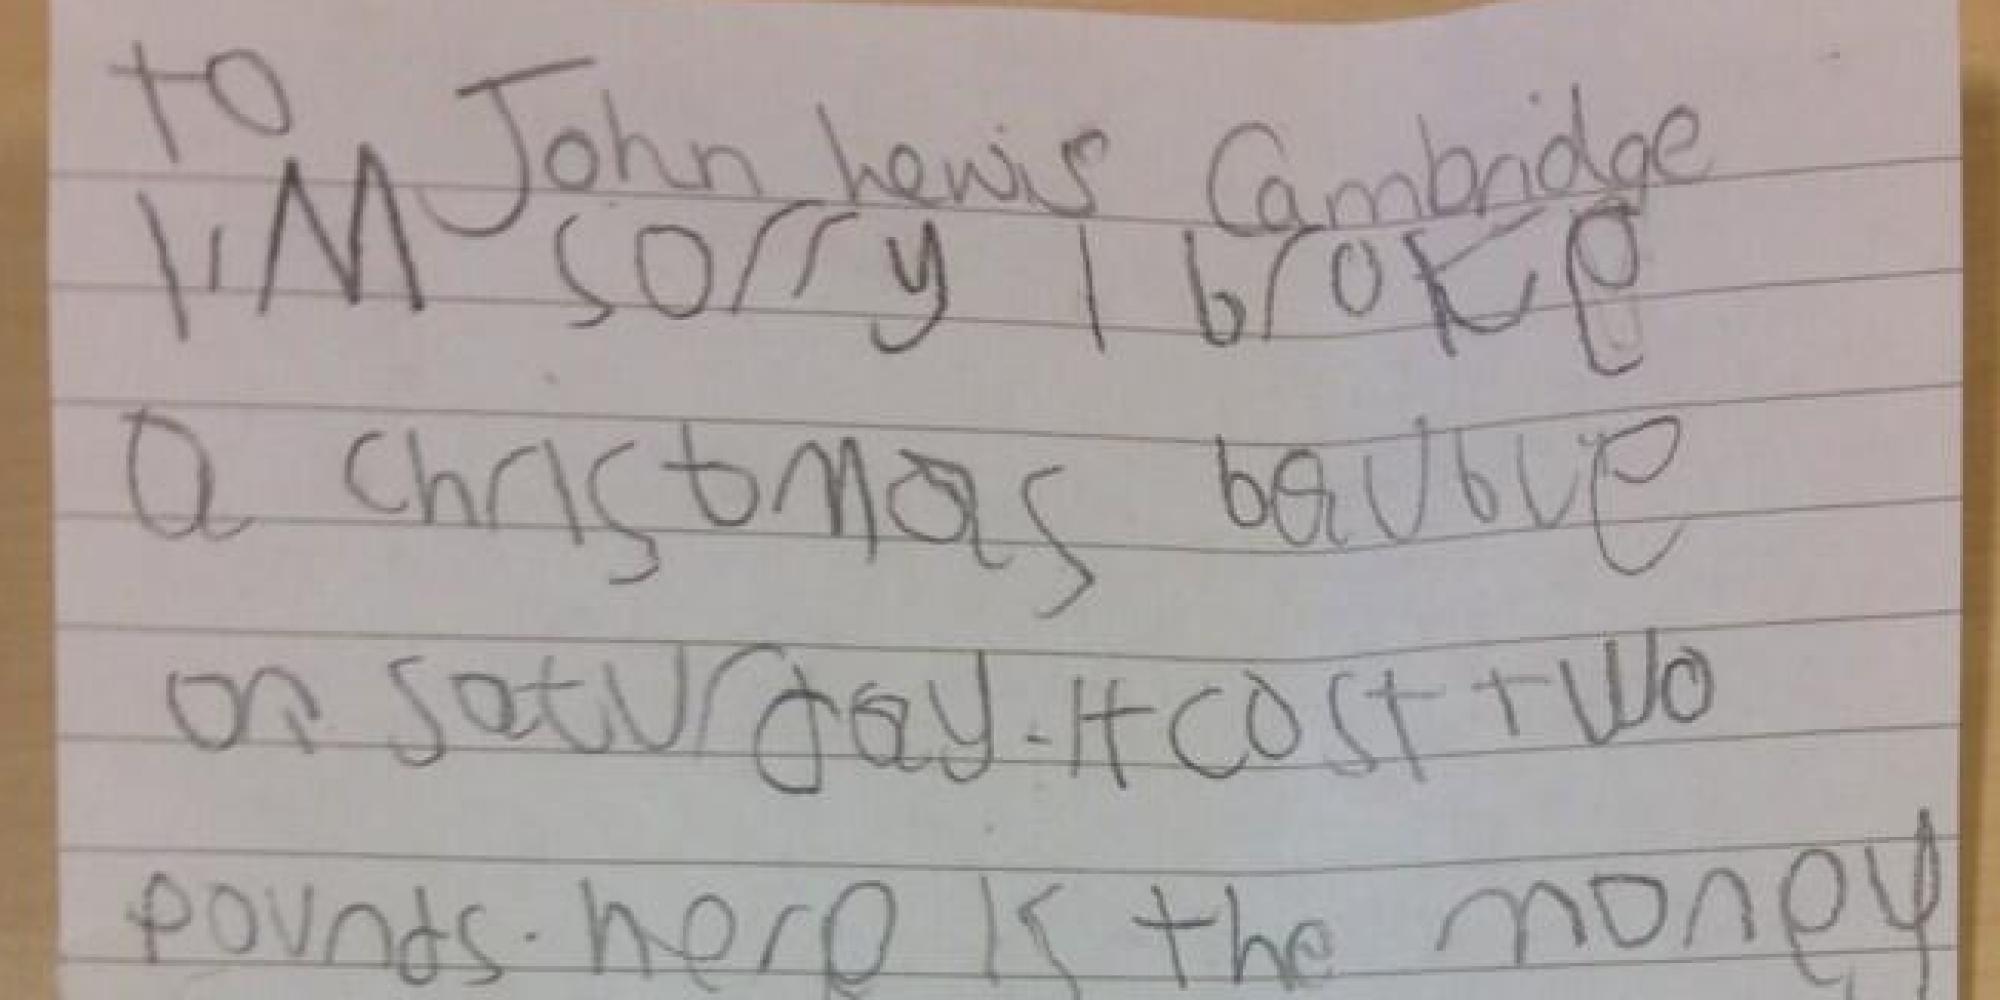 to John Lewis Cambridge
I'M sorry I broke
a christmas bauble
on saturday. It cost two
pounds. here is the money